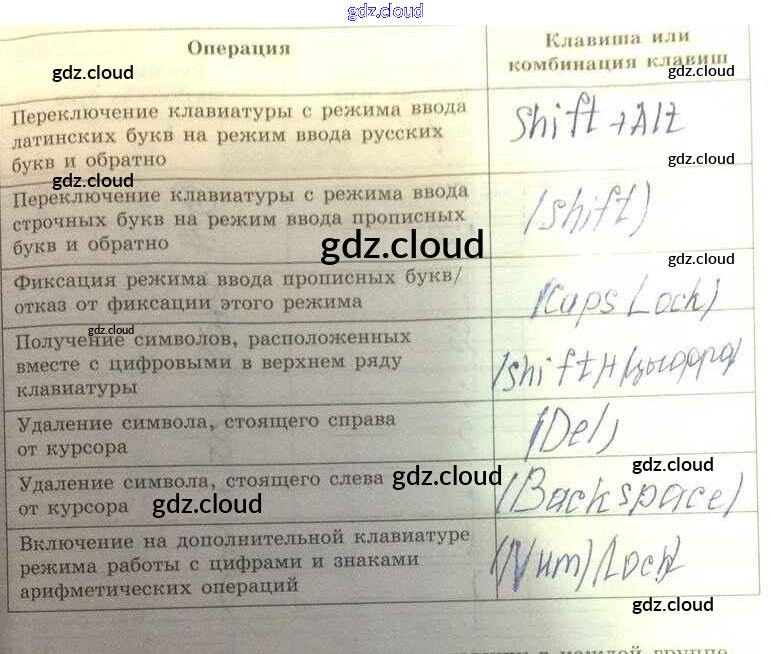 gdz.cloud
Операция
Клавиша или
комбинация клавиш
gdz.cloud
gdz.cloud
Переключение клавиатуры с режима ввода
латинских букв на режим ввода русских
букв и обратно
Shift + Alt
gdz.cloud
gdz.cloud
Переключение клавиатуры с режима ввода
строчных букв на режим ввода прописных
букв и обратно
(Shift)
gdz.cloud
gdz.cloud
Фиксация режима ввода прописных букв/
отказ от фиксации этого режима
(Caps Lock)
gdz.cloud
Получение символов, расположенных
вместе с цифровыми в верхнем ряду
клавиатуры
(shift)+(цыфра)
Удаление символа, стоящего справа
от курсора
(Del)
gdz.cloud
Удаление символа, стоящего слева
от курсора
(Backspace)
gdz.cloud
gdz.cloud
Включение на дополнительной клавиатуре
режима работы с цифрами и знаками
арифметических операций
(Num)(Lock)
gdz.cloud
в каждой группе